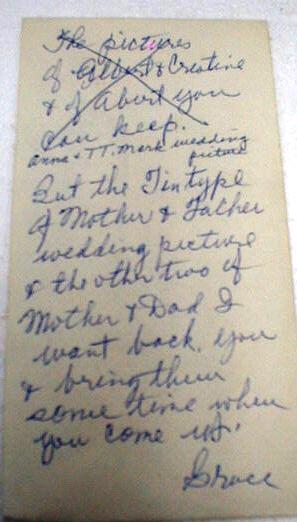 The pictures
of Gilbert & Cristine
& of Albert you
can keep.
Anna & T.T. Mork wedding
picture
But the Tintype
of Mother & Father
wedding picture
& the other two of
Mother & Dad I
want back. you
& bring them
some time when
you come up.
Grace